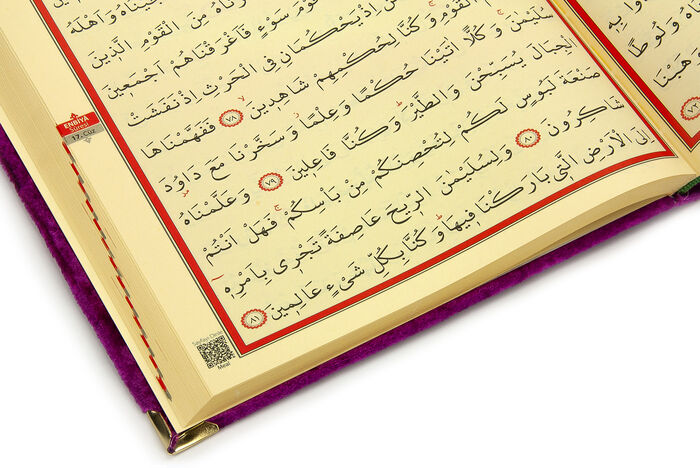 ـيْنَاهُ وَاَهْلَهُ
ـرْنَاهُ مِنَ الْقَوْمِ الَّذِينَ
سَوْءٍ فَاَغْرَقْنَاهُمْ اَجْمَعِينَ
اِذْ يَحْكُمَانِ فِي الْحَرْثِ اِذْ نَفَشَتْ
الْقَوْمِ وَكُنَّا لِحُكْمِهِمْ شَاهِدِينَ ٧٨ فَفَهَّمْنَاهَا
سُلَيْمٰنَ وَكُلًّا اٰتَيْنَا حُكْمًا وَعِلْمًا وَسَخَّرْنَا مَعَ دَاوُدَ
الْجِبَالَ يُسَبِّحْنَ وَالطَّيْرَ وَكُنَّا فَاعِلِينَ ٧٩ وَعَلَّمْنَاهُ
صَنْعَةَ لَبُوسٍ لَكُمْ لِتُحْصِنَكُمْ مِنْ بَأْسِكُمْ فَهَلْ اَنْتُمْ
شَاكِرُونَ ٨٠ وَلِسُلَيْمٰنَ الرِّيحَ عَاصِفَةً تَجْرِي بِاَمْرِهِ
اِلَى الْاَرْضِ الَّتِي بَارَكْنَا فِيهَا وَكُنَّا بِكُلِّ شَيْءٍ عَالِمِينَ ٨١
ENBİYA
Sûresi
17. Cüz
Meal
وَلُوطًا